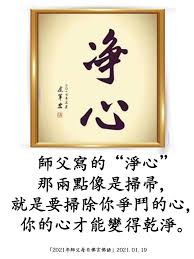 净
心
師父寫的“淨心”
那兩點像是掃帚，
就是要掃除你爭鬥的心，
你的心才能變得乾淨。
「2021年師父每日佛言佛語」2021. 01. 19